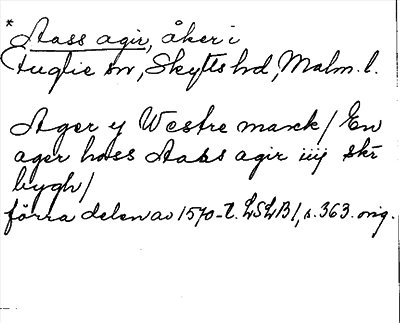 *Aass agir, åker i
Fuglie sn, Skytts hd, Malm. l.
Ager y Westre marck/ En
ager hoss Aabs agir iiij skr
bygh/
förra delen av 1570-t. LSLB 1, s. 363. orig.